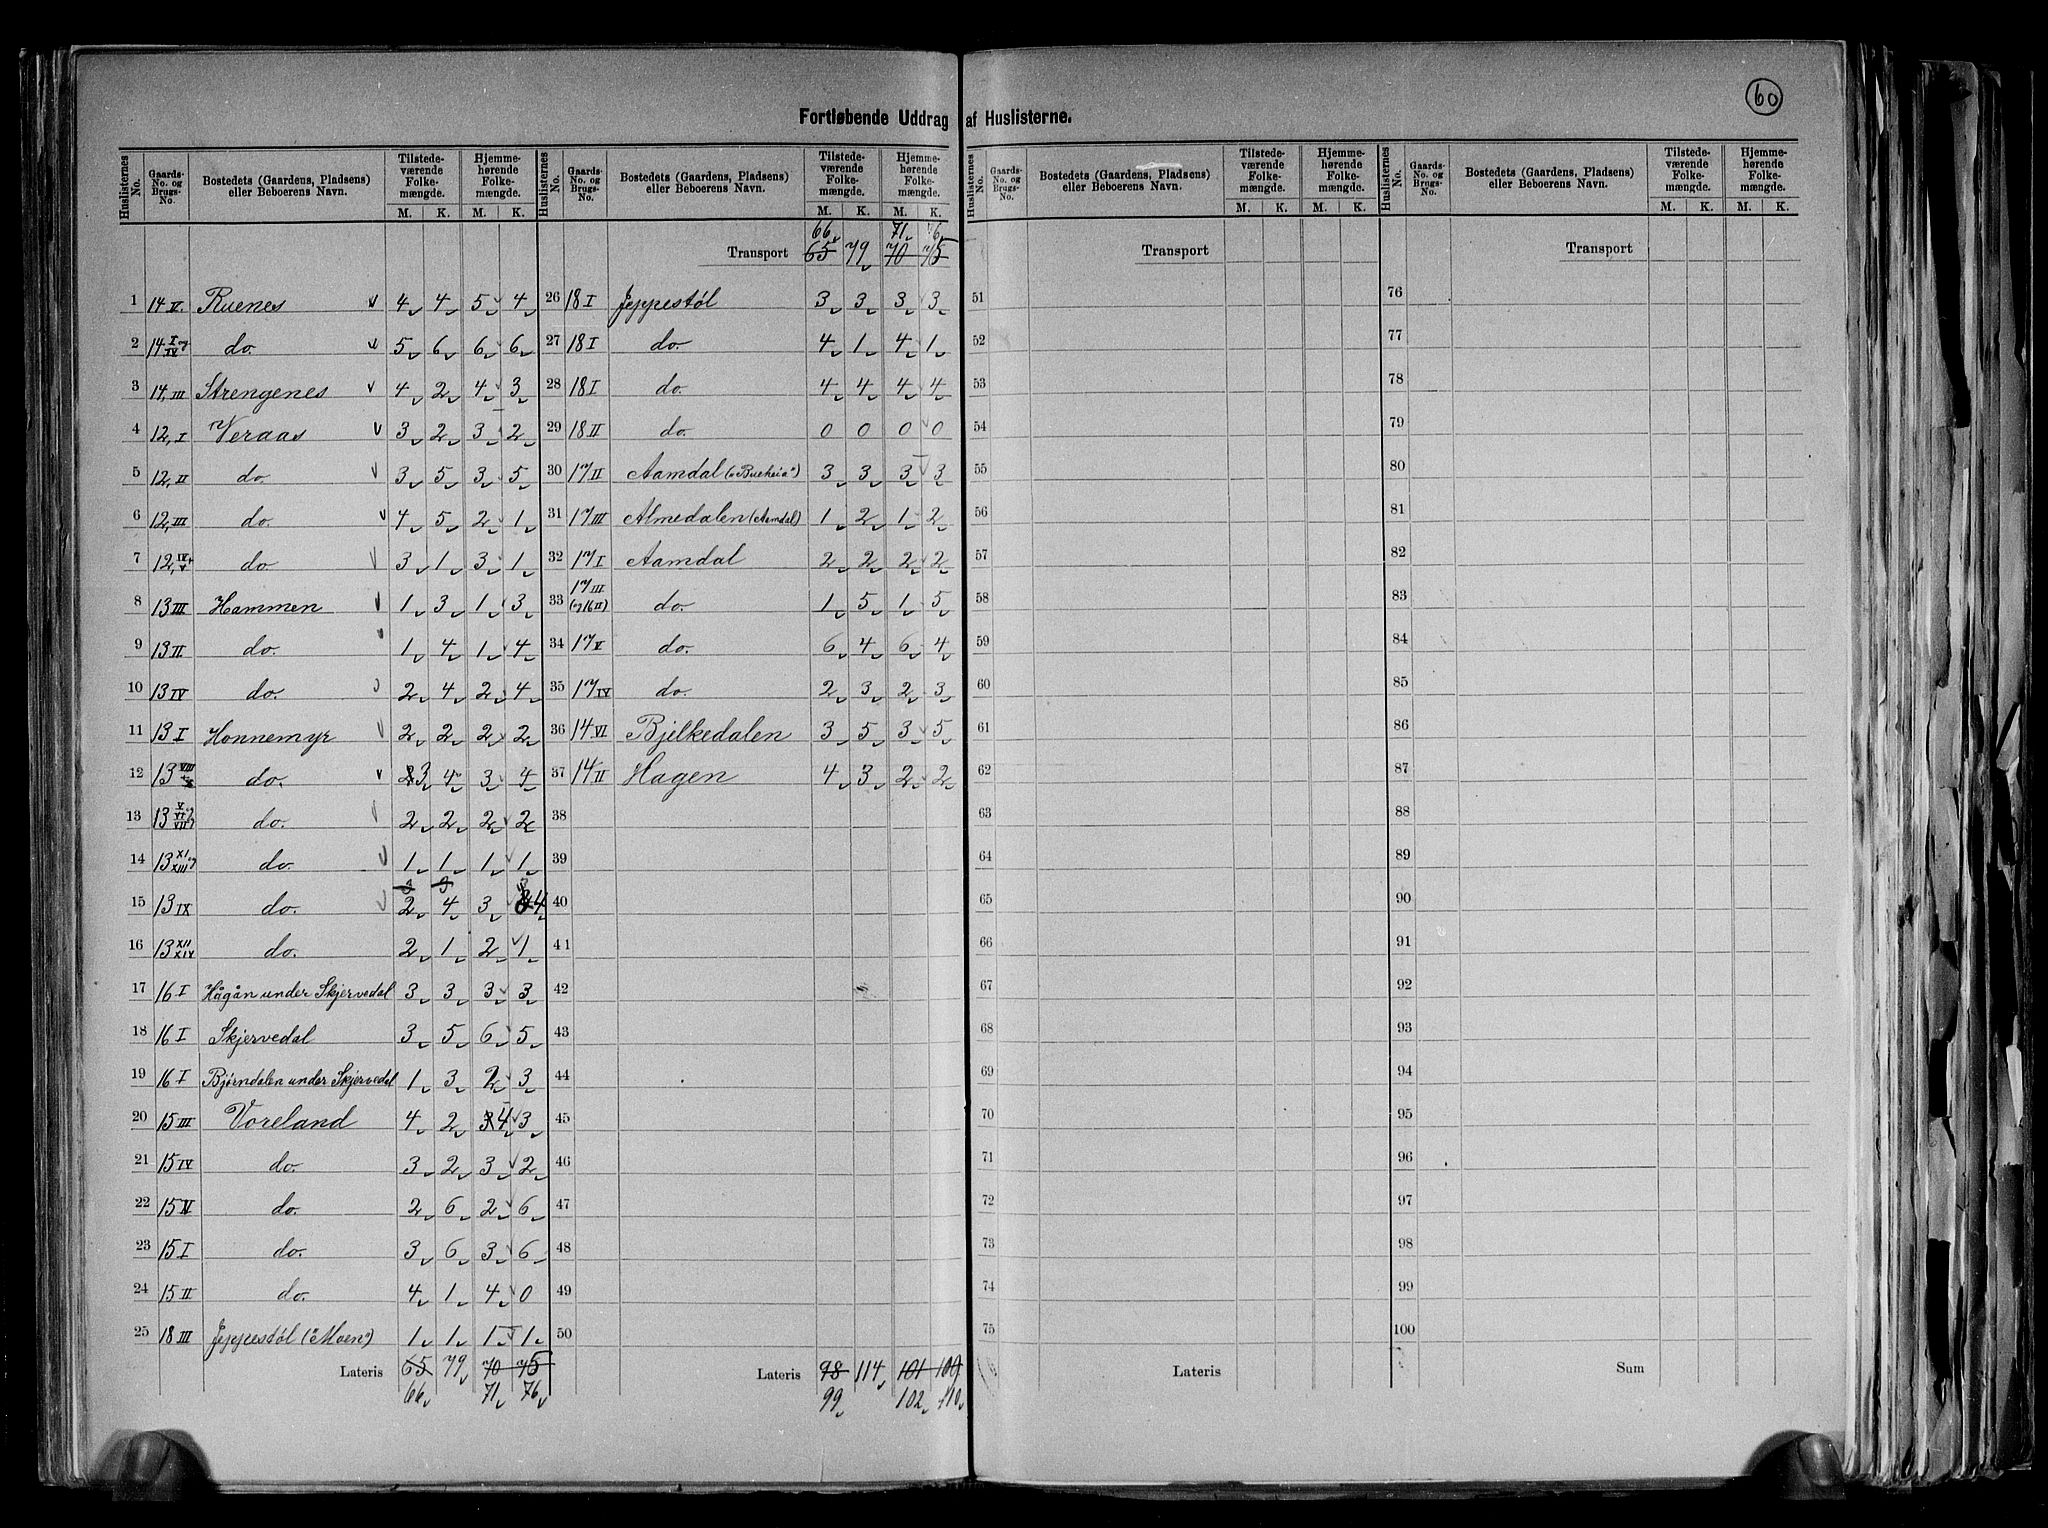 60
Fortløbende Uddrag af Huslisterne.
Huslisternes No. Gaards-No. og Brugs-No. Bostedets (Gaardens, Pladsens) eller Beboerens Navn. Tilstedeværende Folkemængde. M. K. Hjemmehørende Folkemængde. M. K.
1 14 V. Ruenes 4 4 5 4
2 14 I og IV do. 5 6 6 6
3 14, III Strengenes 4 2 4 3
4 12, I Veraas 3 2 3 2
5 12, II do 3 5 3 5
6 12, III do. 4 5 2 1
7 12, IV + V do. 3 1 3 1
8 13 III Hammen 1 3 1 3
9 13 II do. 1 4 1 4
10 13 IV do. 2 4 2 4
11 13 I Honnemyr 2 2 2 2
12 13 VIII + X do. 2 3 4 3 4
13 13 V VI og VII do. 2 2 2 2
14 13 XI og XIII do. 1 1 1 1
15 13 IX do. 3 2 3 4 3 3 4
16 13 XII XIV do. 2 1 2 1
17 16 I Hågån under Skjervedal 3 3 3 3
18 16 I Skjervedal 3 5 6 5
19 16 I Bjørndalen under Skjervedal 1 3 2 3
20 15 III Voreland 4 2 3 4 3
21 15 IV do. 3 2 3 2
22 15 V do. 2 6 2 6
23 15 I do. 3 6 3 6
24 15 II do. 4 1 4 0
25 18 III Jeppestøl ("Moen") 1 1 1 1
Lateris 65 79 70 75
66 71 76
Huslisternes No. Gaards-No. og Brugs-No. Bostedets (Gaardens, Pladsens) eller Beboerens Navn. Tilstedeværende Folkemængde. M. K. Hjemmehørende Folkemængde. M. K.
66 71 76
Transport 65 79 70 75
26 18 I Jeppestøl 3 3 3 3
27 18 I do. 4 1 4 1
28 18 I do. 4 4 4 4
29 18 II do. 0 0 0 0
30 17 II Aamdal ("Bueheia") 3 3 3 3
31 17 III Almedalen (Aamdal) 1 2 1 2
32 17 I Aamdal 2 2 2 2
33 17 III (og 16 II) do. 1 5 1 5
34 17 V do. 6 4 6 4
35 17 IV do. 2 3 2 3
36 14 VI Bjelkedalen 3 5 3 5
37 14 II Hagen 4 3 2 2
38
39
40
41
42
43
44
45
46
47
48
49
50
Lateris 98 114 101 109
99 102 110
Huslisternes No. Gaards-No. og Brugs-No. Bostedets (Gaardens, Pladsens) eller Beboerens Navn. Tilstedeværende Folkemængde. M. K. Hjemmehørende Folkemængde. M. K.
Transport
51
52
53
54
55
56
57
58
59
60
61
62
63
64
65
66
67
68
69
70
71
72
73
74
75
Lateris
Huslisternes No. Gaards-No. og Brugs-No. Bostedets (Gaardens, Pladsens) eller Beboerens Navn. Tilstedeværende Folkemængde. M. K. Hjemmehørende Folkemængde. M. K.
Transport
76
77
78
79
80
81
82
83
84
85
86
87
88
89
90
91
92
93
94
95
96
97
98
99
100
Sum